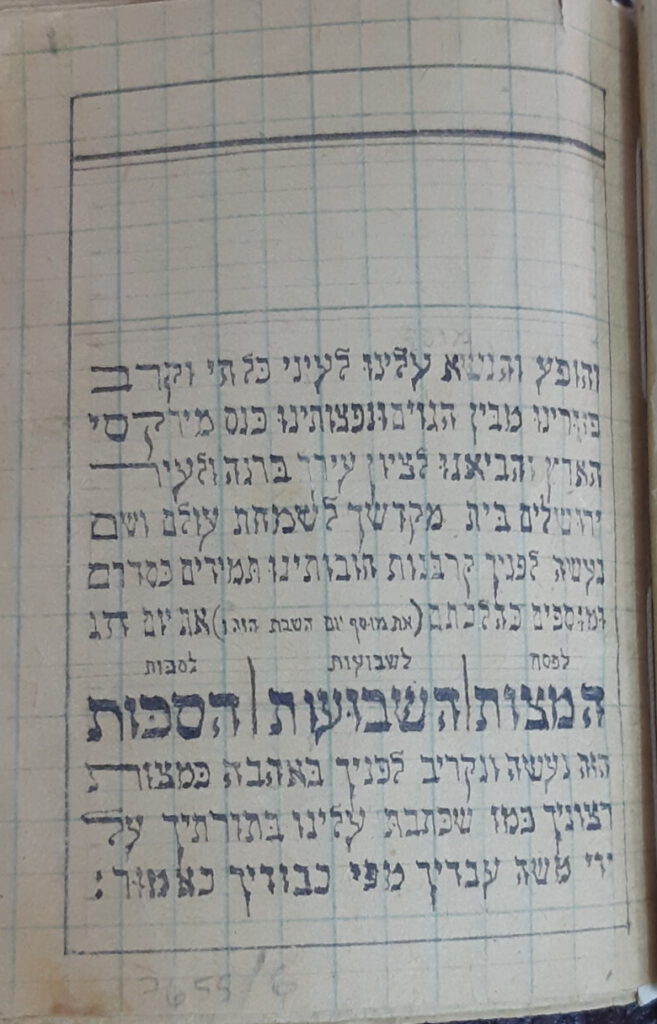 והופע והנשא עלינו לעיני כל חי וקרב
פזורינו מבין הגוים ונפצותינו כנס מירקסי
הארץ והביאנו לציון עירך ברנה ולעיר
ירושלים בית מקדשך לשמחת עולם ושם
נעשה לפניך קרבנות חובותינו תמידים כסדרם
ומוספים כהלכתם (את מוסף יום השבת הזה ו) את יום חג
לפסח לשבועות לסכות
המצות | השבועות | הסכות
הזה נעשה ונקריב לפניך באהבה כמצות
רצוניך כמו שכתבת עלינו בתורתיך על
ידי משה עבדיך מפי כבודיך כאמור: